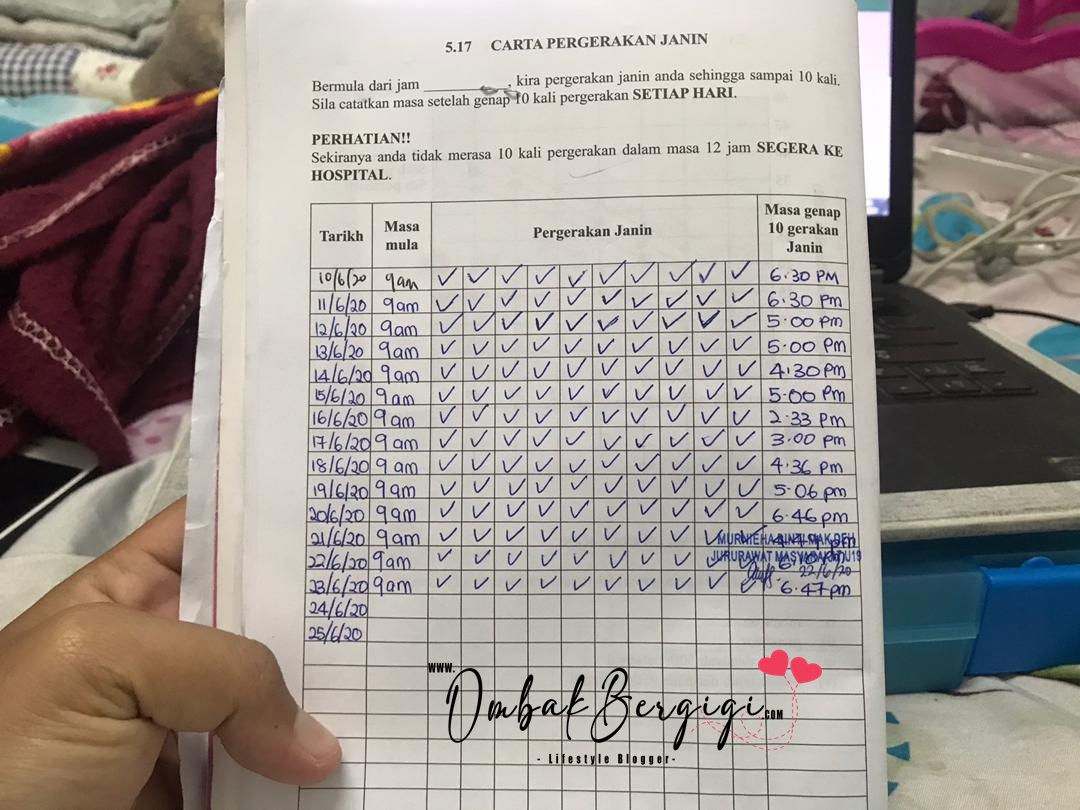 5.17 CARTA PERGERAKAN JANIN
Bermula dari jam ____________, kira pergerakan janin anda sehingga sampai 10 kali.
Sila catatkan masa setelah genap 10 kali pergerakan SETIAP HARI.
PERHATIAN!!
Sekiranya anda tidak merasa 10 kali pergerakan dalam masa 12 jam SEGERA KE
HOSPITAL.
Tarikh Masa mula Pergerakan Janin Masa genap 10 gerakan Janin
10/6/20 9am ✓ ✓ ✓ ✓ ✓ ✓ ✓ ✓ ✓ ✓ 6.30 PM
11/6/20 9am ✓ ✓ ✓ ✓ ✓ ✓ ✓ ✓ ✓ ✓ 6.30 pm
12/6/20 9am ✓ ✓ ✓ ✓ ✓ ✓ ✓ ✓ ✓ ✓ 5.00 pm
13/6/20 9am ✓ ✓ ✓ ✓ ✓ ✓ ✓ ✓ ✓ ✓ 5.00 pm
14/6/20 9am ✓ ✓ ✓ ✓ ✓ ✓ ✓ ✓ ✓ ✓ 4.30 pm
15/6/20 9am ✓ ✓ ✓ ✓ ✓ ✓ ✓ ✓ ✓ ✓ 5.00 pm
16/6/20 9am ✓ ✓ ✓ ✓ ✓ ✓ ✓ ✓ ✓ ✓ 2.33 pm
17/6/20 9am ✓ ✓ ✓ ✓ ✓ ✓ ✓ ✓ ✓ ✓ 3.00 pm
18/6/20 9am ✓ ✓ ✓ ✓ ✓ ✓ ✓ ✓ ✓ ✓ 4.36 pm
19/6/20 9am ✓ ✓ ✓ ✓ ✓ ✓ ✓ ✓ ✓ ✓ 5.06 pm
20/6/20 9am ✓ ✓ ✓ ✓ ✓ ✓ ✓ ✓ ✓ ✓ 6.46 pm
21/6/20 9am ✓ ✓ ✓ ✓ ✓ ✓ ✓ ✓ ✓ pm
22/6/20 9am ✓ ✓ ✓ ✓ ✓ ✓ ✓ ✓
JURURAWAT
22/6/20
23/6/20 9am ✓ ✓ ✓ ✓ ✓ ✓ ✓ ✓ ✓ ✓ 6.47 pm
24/6/20
25/6/20
www.
OmbakBergigi.com
- Lifestyle Blogger-